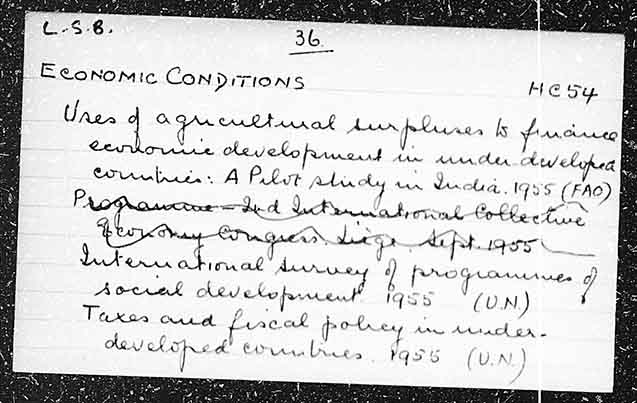 L.S.B.
36.
ECONOMIC CONDITIONS
HC54
Uses of agricultural surpluses to finance
economic development in under-developed
countries: A Pilot study in India. 1955 (FAO)
Programme - 2nd International Collective
Economy Congress. Liège. Sept. 1955
International survey of programmes of
social development 1955 (U.N.)
Taxes and fiscal policy in under-
developed countries. 1955 (U.N.)